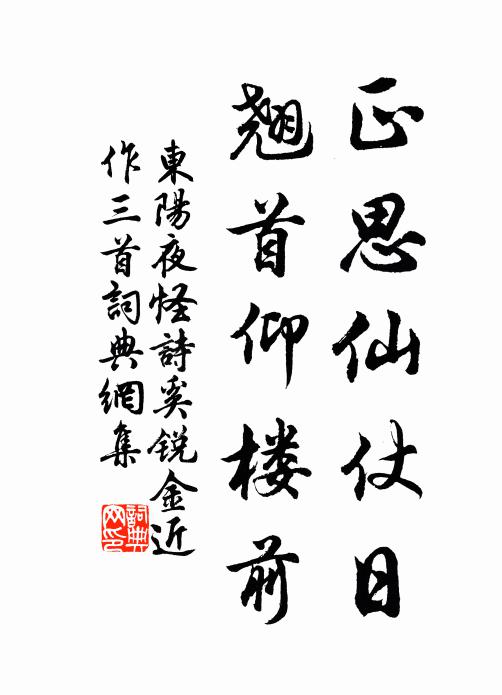 正思仙仗日
翘首仰楼前
東陽夜怪詩奚銳金近
作三首詞典網集
詞典
网印